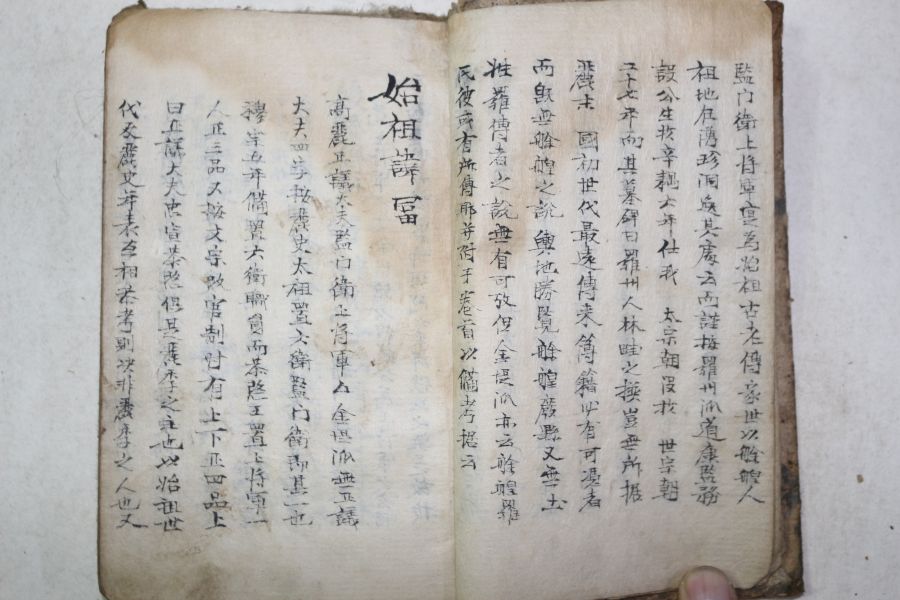 監門衛上將軍寔爲始祖古老傳家世以艅艎人
祖地在薄珍洞岌其處云而謹按羅州派道康監務
設公生於辛耦六年仕我 太宗朝歿於 世宗朝
二十七年而其墓碑曰羅州人林畦之後豈無所据
麗末 國初世代最遠傳來簿籍必有可憑者
而旣無艅艎之說輿地勝覽艅艎廢縣又無土
姓羅傳者之說無有可攷但金堤派亦云艅艎羅
氏彼或有所傳耶并附于卷首以備考据云
始祖諱富
高麗正議大夫監門衛上將軍 金堤派無正議
大夫四字按麗史太祖置六衛監門衛卽其一也
穆宗五年備置六衛職員而恭愍王置上將軍一
人正三品又按文宗改官制時有上下正四品上
曰正議大夫忠宣恭愍俱其麗季之主也以始祖世
代及麗史年表互相叅考則决非麗季之人也又